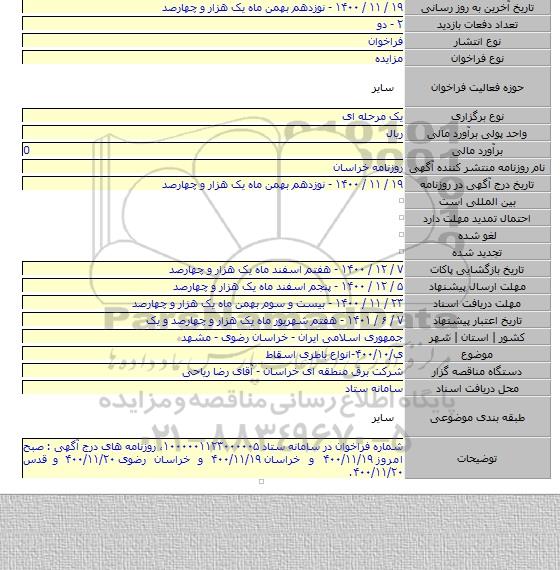 تاریخ آخرین به روز رسانی ۱۹ / ۱۱ / ۱۴۰۰ - نوزدهم بهمن ماه یک هزار و چهارصد
تعداد دفعات بازدید ۲ - دو
نوع انتشار فراخوان
نوع فراخوان مزایده
حوزه فعالیت فراخوان سایر
نوع برگزاری یک مرحله ای
واحد پولی برآورد مالی ریال
برآورد مالی 0
نام روزنامه منتشر کننده آگهی روزنامه خراسان
تاریخ درج آگهی در روزنامه ۱۹ / ۱۱ / ۱۴۰۰ - نوزدهم بهمن ماه یک هزار و چهارصد
بین المللی است
احتمال تمدید مهلت دارد
لغو شده
تجدید شده
تاریخ بازگشایی پاکات ۷ / ۱۲ / ۱۴۰۰ - هفتم اسفند ماه یک هزار و چهارصد
مهلت ارسال پیشنهاد ۵ / ۱۲ / ۱۴۰۰ - پنجم اسفند ماه یک هزار و چهارصد
مهلت دریافت اسناد ۲۳ / ۱۱ / ۱۴۰۰ - بیست و سوم بهمن ماه یک هزار و چهارصد
تاریخ اعتبار پیشنهاد ۷ / ۶ / ۱۴۰۱ - هفتم شهریور ماه یک هزار و چهارصد و یک
کشور | استان | شهر جمهوری اسلامی ایران - خراسان رضوی - مشهد
موضوع ی/۴۰۰/۱۰-انواع باطری اسقاط
دستگاه مناقصه گزار شرکت برق منطقه ای خراسان - آقای رضا ریاحی
محل دریافت اسناد سامانه ستاد
پایگاه اطلاع رسانی مناقصه و مزایده
طبقه بندی موضوعی سایر
۰۲۱-۸۸۳۴۹۶۷۰-۵
توضیحات شماره فراخوان در سامانه ستاد ۱۰۰۰۰۰۱۱۲۳۰۰۰۰۰۵، روزنامه های درج آگهی : صبح
امروز ۴۰۰/۱۱/۱۹ و خراسان ۴۰۰/۱۱/۱۹ و خراسان رضوی ۴۰۰/۱۱/۲۰ و قدس
۴۰۰/۱۱/۲۰.